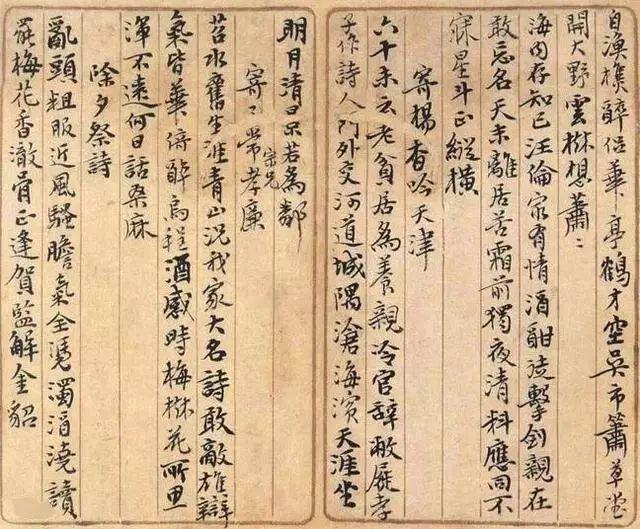 自漁樵醉倚華亭鶴才空吳市簫草堂
開大野雲樹想蕭〻
海內存知己汪倫家有情酒酣徒擊劍親在
敢忘名天末離居苦霜前獨夜清料應同不
寐星斗正縱橫
寄楊香吟天津
六十未云老貧居為養親冷官辭敝屣孝
子作詩人門外交河道城隅滄海濱天涯坐
明月清若為鄰
寄〻常宗兄孝廉
苕水舊生涯青山況我家大名詩敢敵雄辯
氣皆華倚醉高程酒感時梅樹花所思
渾不遠何日話桑麻
除夕祭詩
亂頭粗服近風騷膽氣全憑濁酒澆讀
罷梅花香澈骨正逢賀監解金貂